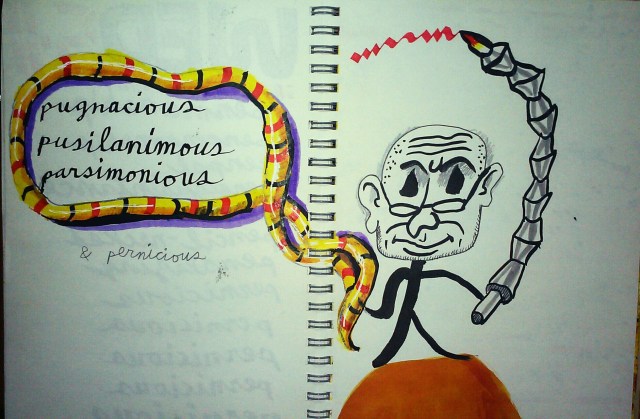 pugnacious
pusilanimous
parsimonious
& pernicious